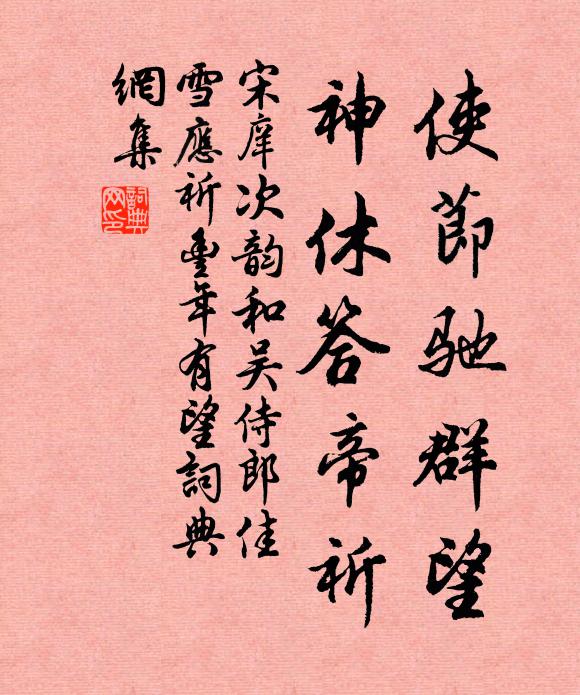 使節馳群望
神休答帝祈
宋庠次韵和吴侍郎佳
雪應祈豐年有望詞典
網集
詞典网印